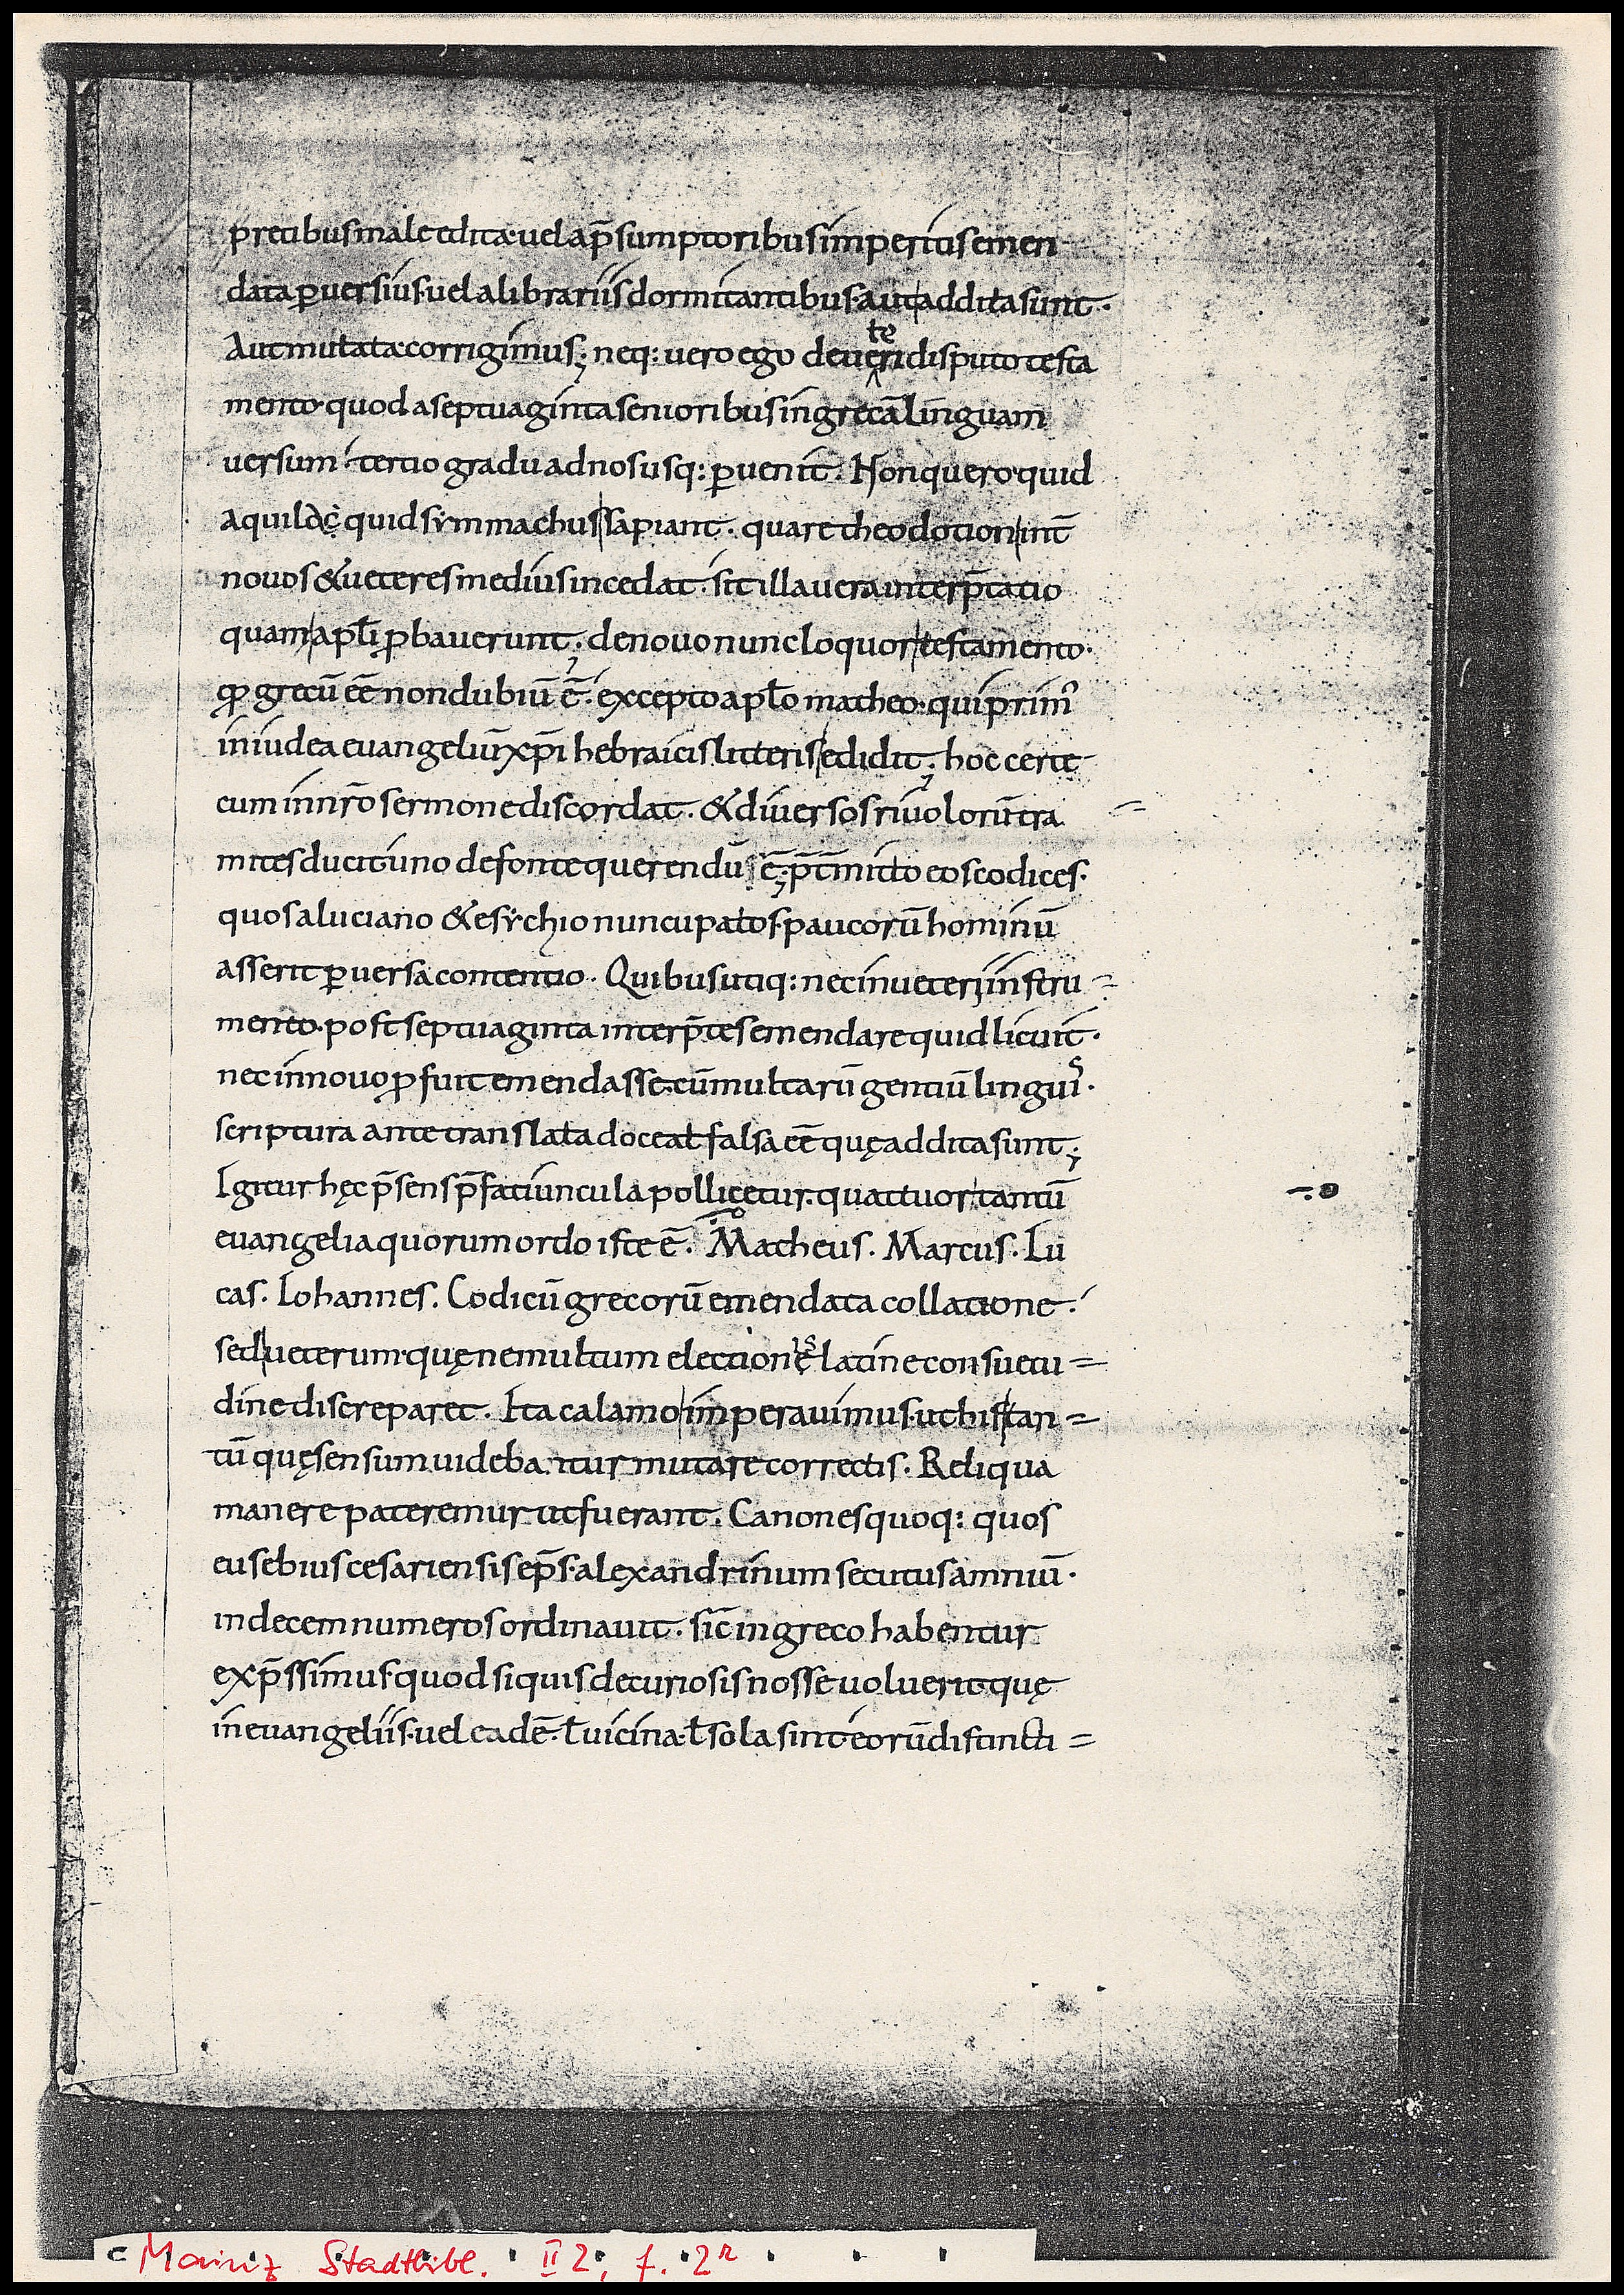 pretibus male edita· uel a p̄sumptoribus imperitis emen
data ꝑuersius· uel a librariis dormitantibus· aut addita sunt·
Aut mutata· corrigimus; neq: uero ego de ueteri disputo testa
mento· quod a septuaginta senioribus in grecā linguam
uersum· tertio gradu ad nos usq: ꝑuenit. Non quero quid
aquila· quid sỳmmachus sapiant. quare theodotion int̄
nouos & ueteres medius incedat. sit illa uera interp̄tatio
quam apl̄i ꝓbauerunt; de nouo nunc loquor testamento·
qđ grecū eē non dubiū ē. excepto apl̄o matheo· qui prim᾽
in iudea euangeliū xp̄i hebraicis litteris edidit; hoc certe
cum in nr̄o sermone discordat. & diuersos riuolorū tra
mites ducit· uno de fonte querendū ē; p̄t̄mitto eos codices·
quos a luciano & esẏchio nuncupatos· paucorū hominū
asserit ꝑuersa contentio. Quibus utiq: nec in ueteri instru=
mento· post septuaginta interp̄tes emendare quid licuit·
nec in nouo ꝓfuit emendasse· cū multarū gentiū linguis·
scriptura ante translata doceat falsa eē quę addita sunt;
Igitur hęc p̄sens p̄fatiuncula pollicetur· quattuor tantū
euangelia quorum ordo iste ē. Matheus. Marcus. Lu
cas. Iohannes. Codicū grecorū emendata collatione.
sed ueterum· quę ne multum electionis latine consuetu=
dine discreparet. Ita calamo imperauimus· ut his tan=
tū quę sensum uideba ntur mutare correctis. Reliqua
manere pateremur ut fuerant. Canones quoq: quos
eusebius cesariensis ep̄s· alexandrinum secutus amniū·
in decem numeros ordinauit. sic̄ in greco habentur
exp̄ssimus· quod si quis de curiosis nosse uoluerit· quę
in euangeliis· uel eadē· ł uicina· ł sola sint· eorū distincti=
Mainz Stadtbibl. II 2, f. 2r